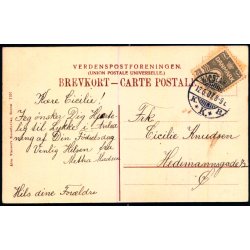 VERDENSPOSTFORENINGEN.
(UNION POSTALE UNIVERSELLE.)
BREVKORT – CARTE POSTALE
Kære Cecilie!
Jeg ønsker Dig Hjerte-
lig til Lykke i Anled-
ning af Din Fødselsdag
Venlig Hilsen
Metha Madsen
Hils dine Forældre
Frk
Cecilie Knudsen
Hedemannsgade